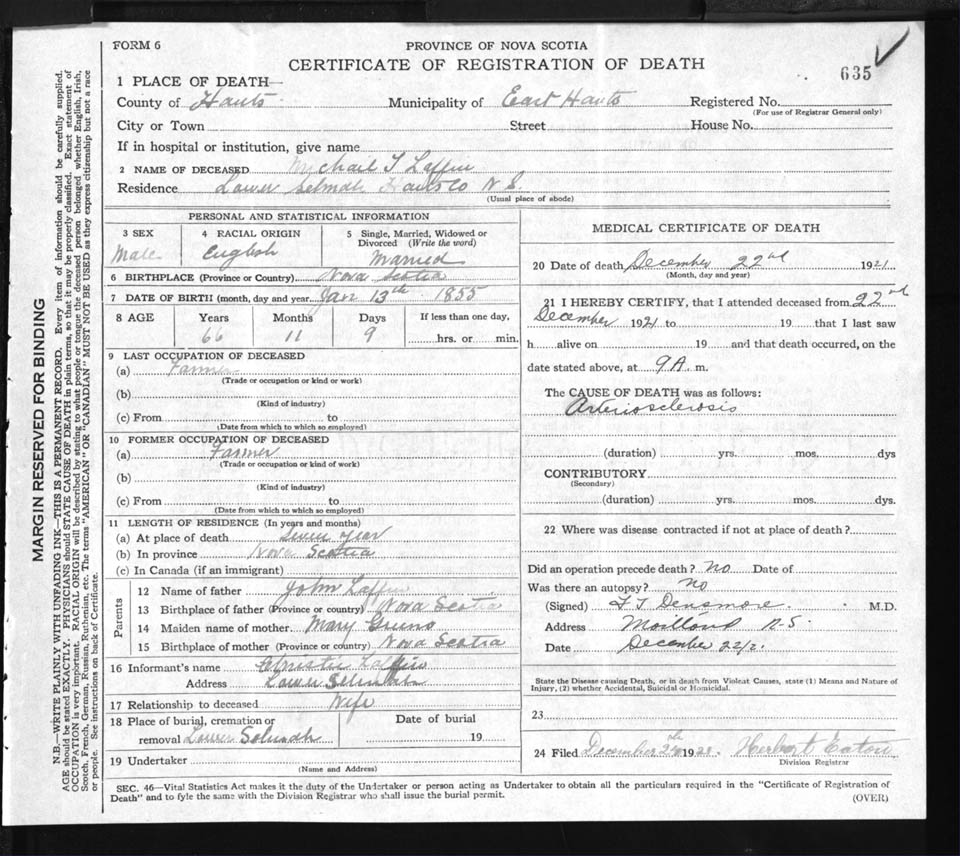 FORM 6
PROVINCE OF NOVA SCOTIA
CERTIFICATE OF REGISTRATION OF DEATH
635
1 PLACE OF DEATH—
County of Hants Municipality of East Hants Registered No.
(For use of Registrar General only)
City or Town Street House No.
If in hospital or institution, give name
2 NAME OF DECEASED Mychail T Laffin
Residence Lower Selmah Hants Co N S.
(Usual place of abode)
PERSONAL AND STATISTICAL INFORMATION
3 SEX
Male
4 RACIAL ORIGIN
English
5 Single, Married, Widowed or
Divorced (Write the word)
Married
6 BIRTHPLACE (Province or Country) Nova Scotia
7 DATE OF BIRTH (month, day and year Jan 13th 1855
8 AGE Years Months Days If less than one day,
66 11 9 hrs. or min.
9 LAST OCCUPATION OF DECEASED
(a) Farmer
(Trade or occupation or kind or work)
(b)
(Kind of industry)
(c) From to
(Date from which to which so employed)
10 FORMER OCCUPATION OF DECEASED
(a) Farmer
(Trade or occupation or kind of work)
(b)
(Kind of industry)
(c) From to
(Date from which to which so employed)
11 LENGTH OF RESIDENCE (In years and months)
(a) At place of death Seven year
(b) In province Nova Scotia
(c) In Canada (if an immigrant)
Parents
12 Name of father John Laffin
13 Birthplace of father (Province or country) Nova Scotia
14 Maiden name of mother Mary
15 Birthplace of mother (Province or country) Nova Scotia
16 Informant's name Laffin
Address Lower Selmah
17 Relationship to deceased Wife
18 Place of burial, cremation or
removal Lower Selmah
Date of burial
19
19 Undertaker
(Name and Address)
MEDICAL CERTIFICATE OF DEATH
20 Date of death December 22nd 1921
(Month, day and year)
21 I HEREBY CERTIFY, that I attended deceased from 22nd
December 1921 to 19 that I last saw
h alive on 19 and that death occurred, on the
date stated above, at 9 A. m.
The CAUSE OF DEATH was as follows:
Arteriosclerosis
(duration) yrs. mos. dys
CONTRIBUTORY
(Secondary)
(duration) yrs. mos. dys.
22 Where was disease contracted if not at place of death?
Did an operation precede death? No Date of
Was there an autopsy? No
(Signed) F T Densmore. M.D.
Address N.S.
Date December 22/21
State the Disease causing Death, or in death from Violeat Causes, state (1) Means and Nature of
Injury, (2) whether Accidental, Suicidal or Homicidal.
23
24 Filed December Herbert Eaton
Division Registrar
SEC. 46—Vital Statistics Act makes it the duty of the Undertaker or person acting as Undertaker to obtain all the particulars required in the "Certificate of Registration of
Death" and to fyle the same with the Division Registrar who shall issue the burial permit.
(OVER)
MARGIN RESERVED FOR BINDING
N.B.—WRITE PLAINLY WITH UNFADING INK—THIS IS A PERMANENT RECORD. Every item of information should be carefully supplied.
AGE should be stated EXACTLY. PHYSICIANS should STATE CAUSE OF DEATH in plain terms, so that it may be properly classified. Exact statement of
OCCUPATION is very important. RACIAL ORIGIN will be described by stating to what people or tongue the deceased person belonged whether English, Irish,
Scotch, French, German, Russian, Ruthenian, etc. The terms "AMERICAN" OR "CANADIAN" MUST NOT BE USED as they express citizenship but not a race
or people. See instructions on back of Certificate.